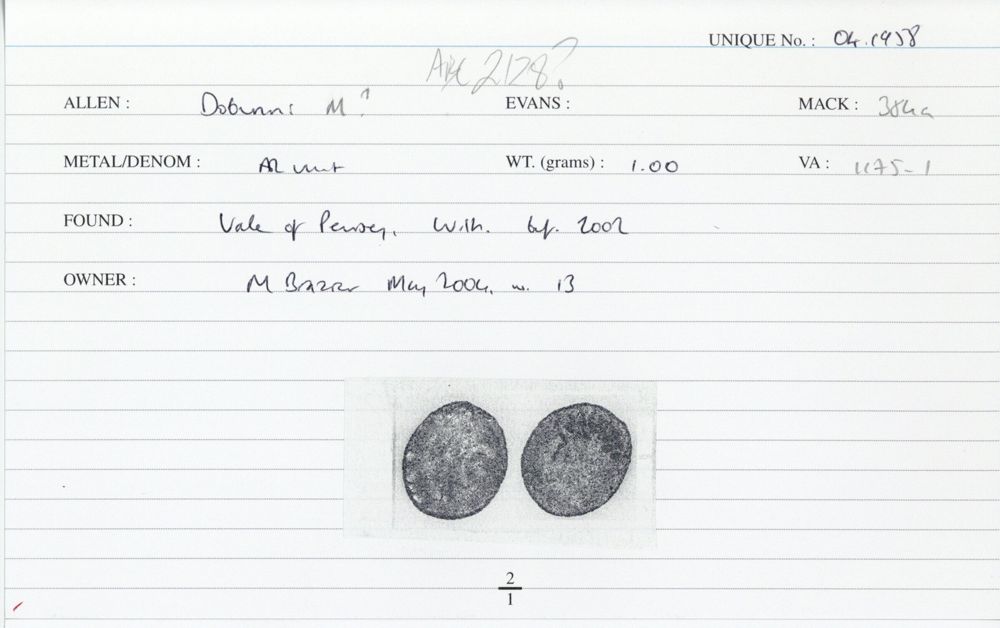 UNIQUE No. : 04.1958
ABC 2128?
ALLEN : Dobunni M? EVANS : MACK : 384a
METAL/DENOM : AR unit WT. (grams) : 1.00 VA : 1175-1
FOUND : Vale of Pewsey, Wilts. bef. 2002
OWNER : M May 2004, 13
2
1